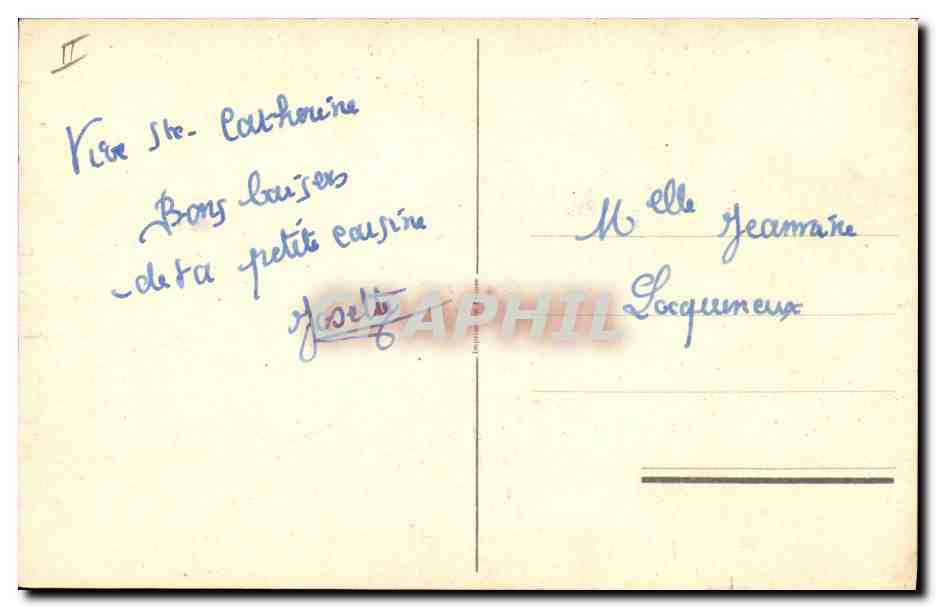 II
Vive Ste-Catherine
Bons baisers
de ta petite cousine
Josette
Melle Jeannine
Locqueneux
CPAPHIL